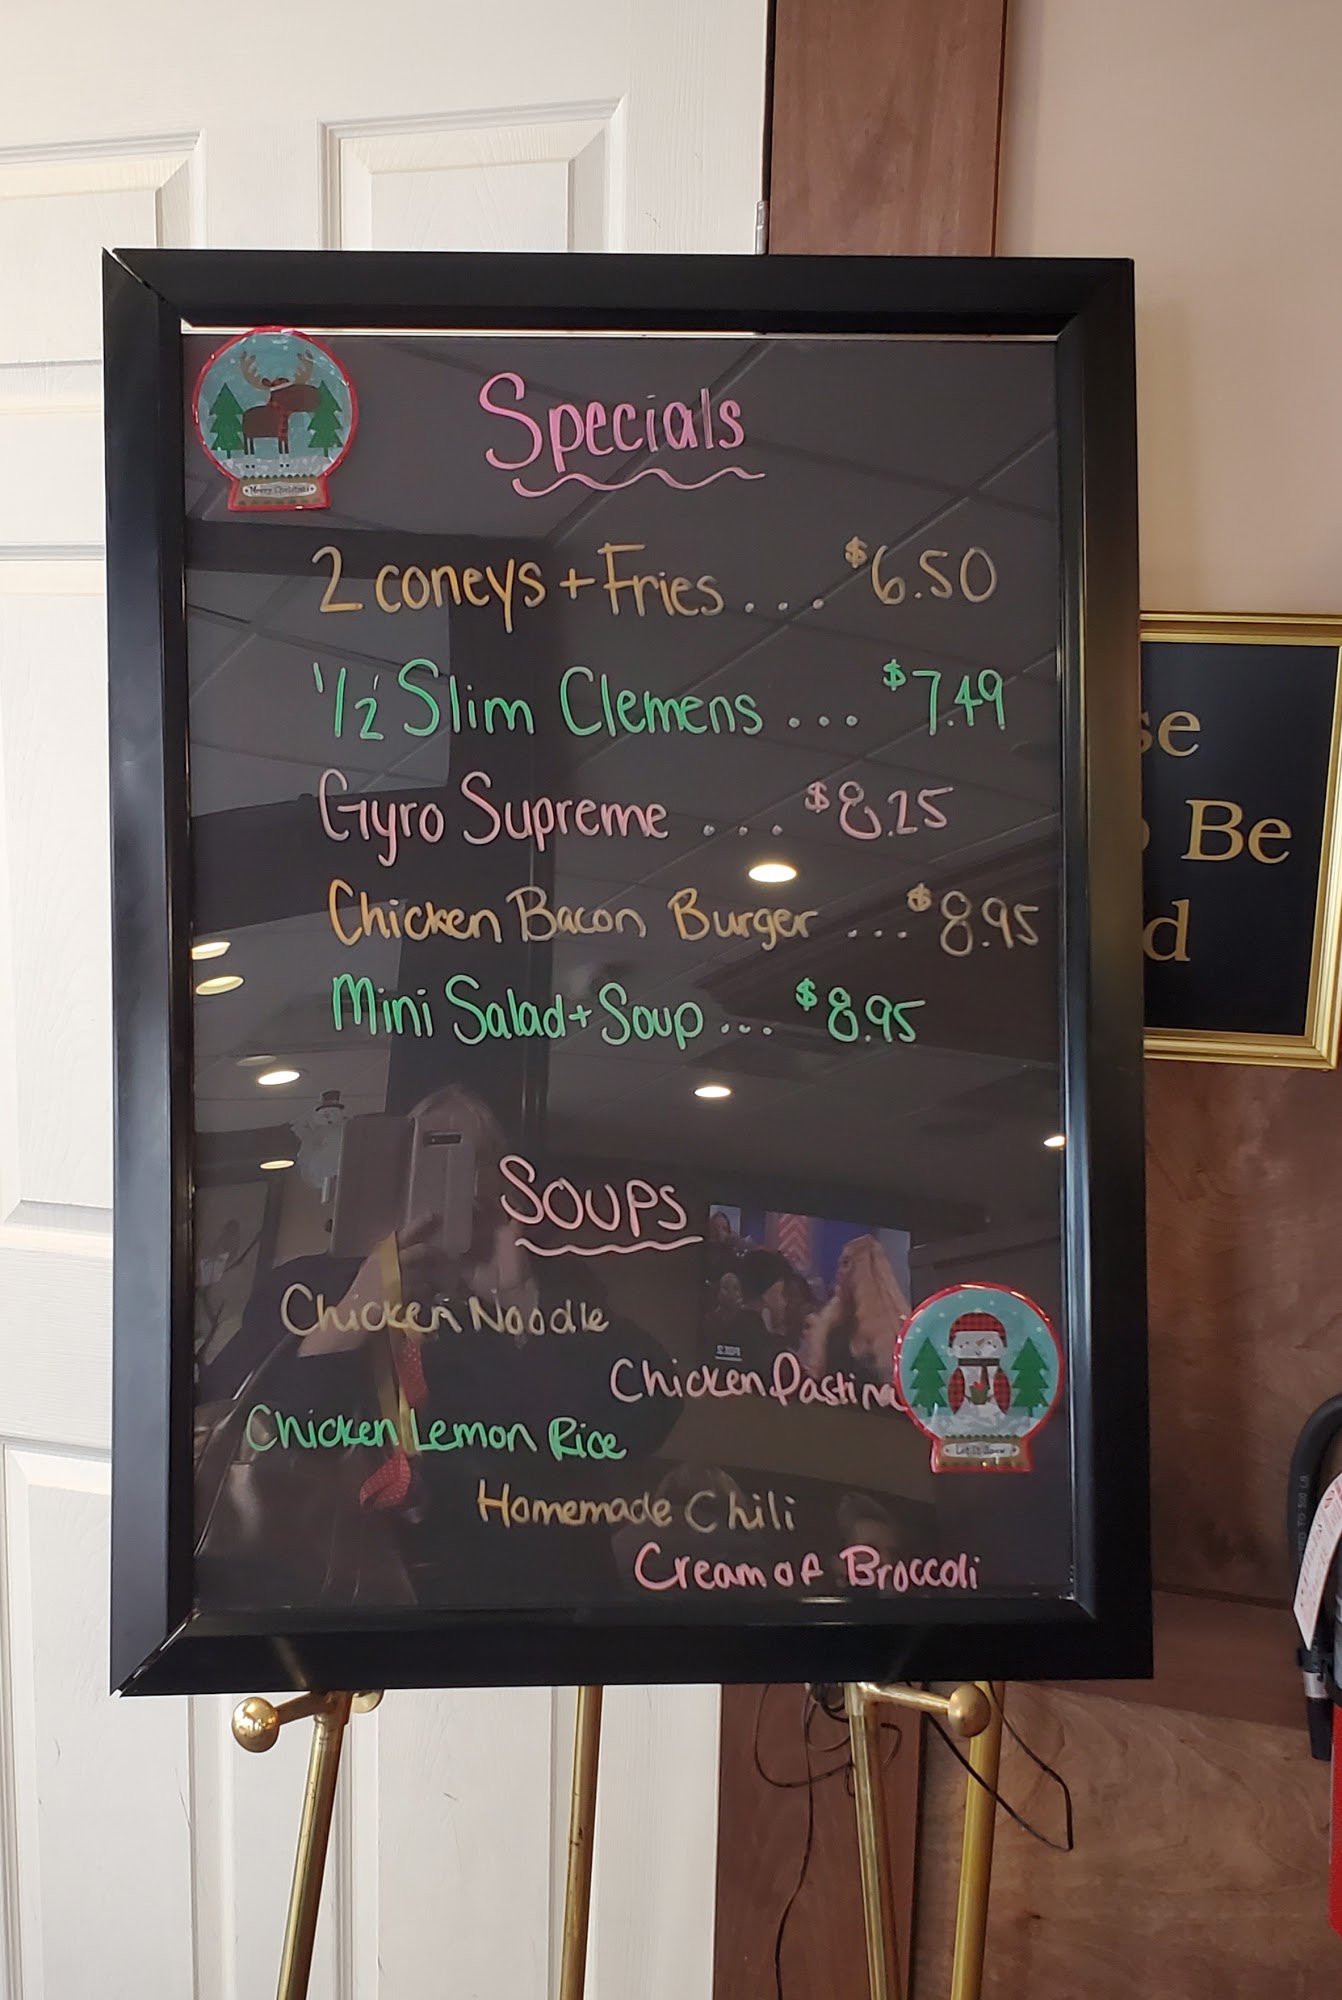 Merry Christmas
Specials
2 coneys + Fries... $6.50
1/2 Slim Clemens ... $7.49
Gyro Supreme ... $8.25
Chicken Bacon Burger ... $8.95
Mini Salad + Soup ... $8.95
Soups
Chicken Noodle
Chicken Pastina
Chicken Lemon Rice
Homemade Chili
Cream of Broccoli
Let It Snow
Be